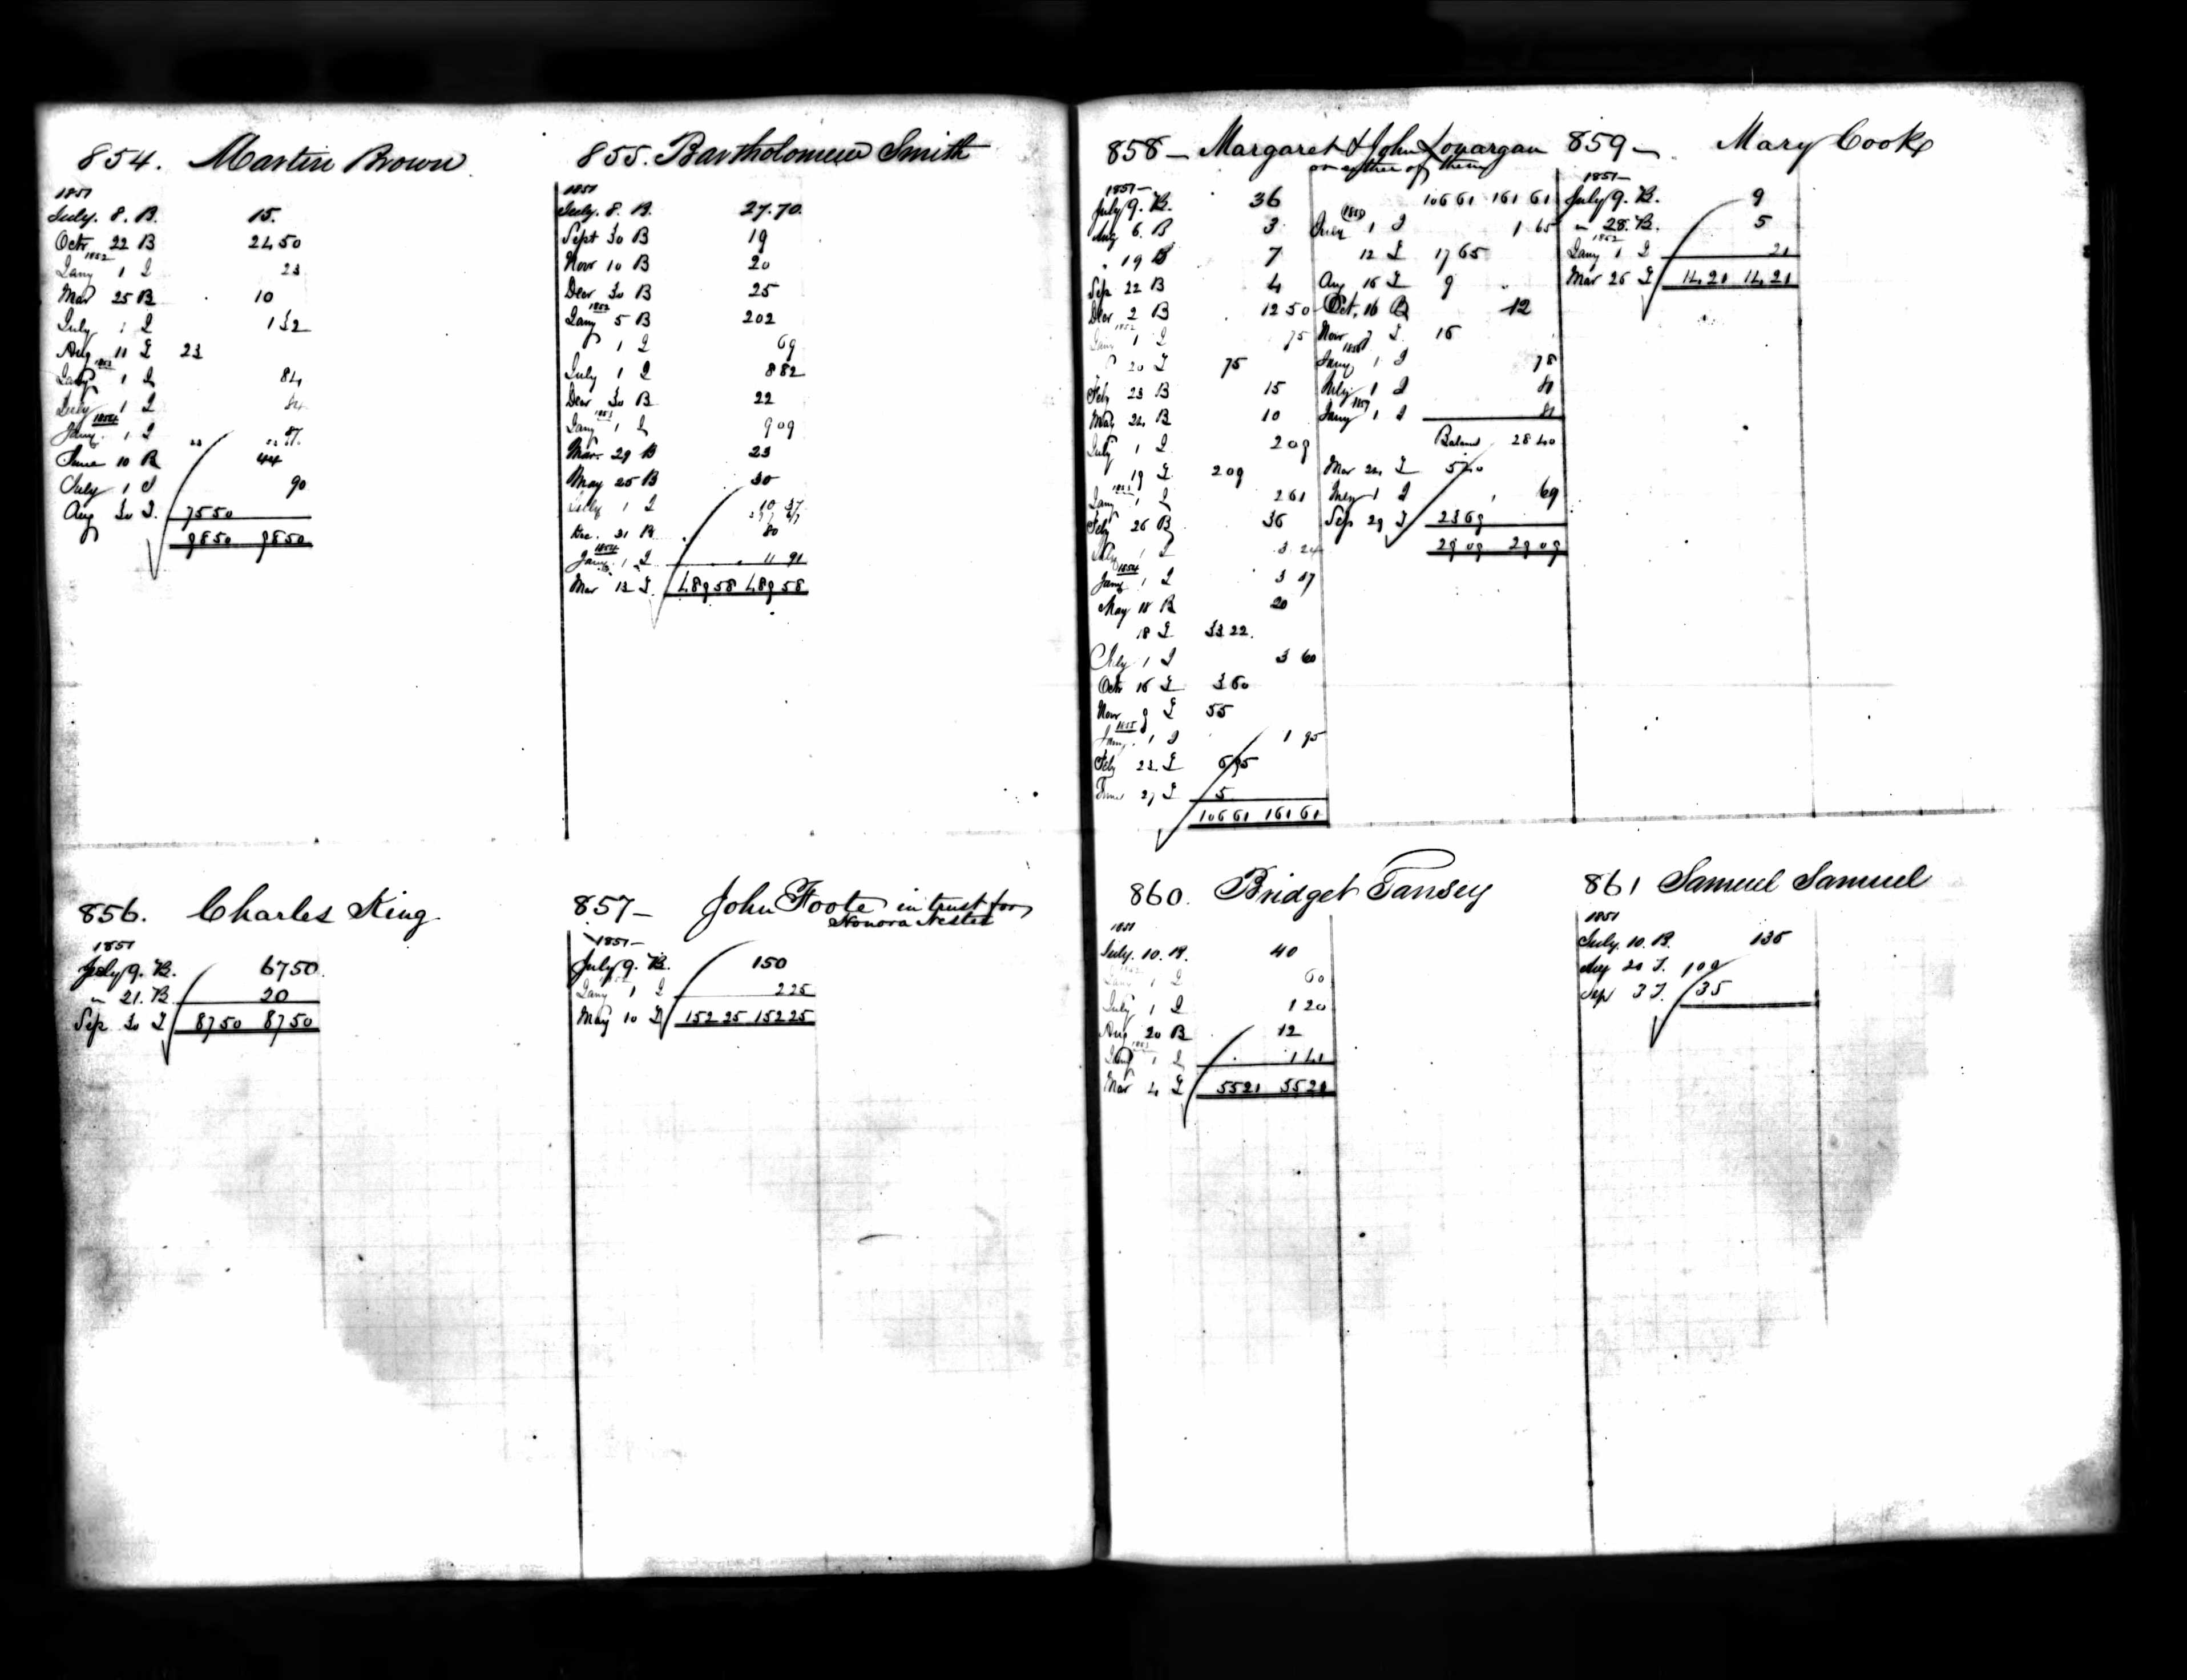 854. Martin Brown
1851
July. 8. B. 15.
Octr 22 B 24 50
1852
Jany 1 I 23
Mar 25 B 10
July 1 I 1 32
Aug 11 I 23
1853
Jany 1 I 84
July 1 I 84
1854
Jany. 1 I 87
June 10 B 44
July 1 I 90
Aug 30 I. 75 50
98 50 98 50
855. Bartholomew Smith
1851
July. 8. B. 27.70.
Sept 30 B 19
Novr 10 B 20
Decr 30 B 25
1852
Jany 5 B 202
1 I 69
July 1 I 8 82
Decr 30 B 22
1853
Jany 1 I 9 09
Mar. 29 B 23
May 25 B 30
July 1 I 10 37
Dec. 21 B 80
1854
Jany 1 I 11 91
Mar 13 I. 489 58 489 58
856. Charles King
1851
July 9. B. 67 50
" 21. B 20
Sep 30 I 87 50 87 50
857 – John Foote in trust for
Honora Nester
1851 –
July 9. B. 150
Jany 1 I 2 25
May 10 I 152 25 152 25
858 – Margaret & John Lonargan
or either of them
1851 –
July 9. B. 36
Aug 6. B 3
" 19 B 7
Sep 22 B 4
Decr 2 B 12 50
1852
Jany 1 I 75
20 I 75
Feby 23 B 15
May 24 B 10
July 1 I 2 09
19 I 2 09
1853
Jany 1 I 2 61
Feby 26 B 36
July 1 I 3 24
1854
Jany 1 I 3 87
May 18 B 20
18 I 33 22.
July 1 I 3 60
Octr 16 I 3 60
Novr 9 I 55
1855
Jany. 1 I 1 95
Feby 23. I 6 95
June 27 I 5
106 61 161 61
106 61 161 61
July 1 I 1 65
12 I 17 65
Aug 16 I 9
Oct. 16 B 12
Novr 7 I 16
1856
Jany 1 I 78
July 1 I 81
1857
Jany 1 I 81
Balance 28 40
Mar 24 I 5 40
July 1 I 69
Sep 29 I 23 69
29 09 29 09
859 – Mary Cook
1851 –
July 9. B. 9
" 28. B. 5
1852
Jany 1 I 21
Mar 26 I 14 21 14 21
860. Bridget Tansey
1851
July. 10. B. 40
Jany 1 I 60
July 1 I 1 20
Aug 20 B 12
1853
Jany 1 I 1 41
Mar 4 I 55 21 55 21
861 Samuel Samuel
1851
July. 10. B. 135
Aug 20 I. 100
Sep 3 I. 35